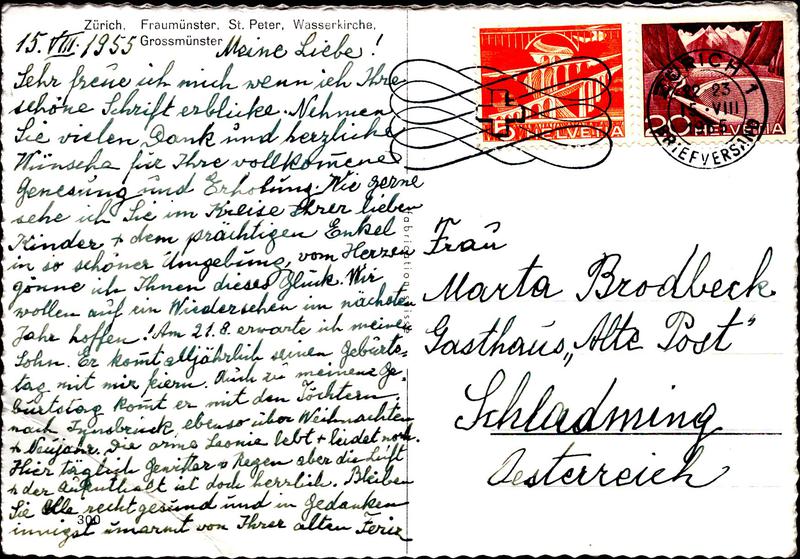 Zürich, Fraumünster, St. Peter, Wasserkirche,
Grossmünster
15. VIII. 1955 Meine Liebe!
Sehr freue ich mich wenn ich Ihre
schöne Schrift erblicke. Nehmen
Sie vielen Dank und herzliche
Wünsche für Ihre vollkomene
Genesung und Erholung. Wie gerne
sehe ich Sie im Kreise Ihrer lieben
Kinder + dem prächtigen Enkel
in so schöner Umgebung, vom Herzen
gönne ich Ihnen dieses Glück. Wir
wollen auf ein Wiedersehen im nächsten
Jahr hoffen! Am 21.8. erwarte ich meinen
Sohn. Er komt alljährlich seinen Geburts-
tag mit mir feiern. Auch zu meinem Ge-
burtstag komt er mit den Töchtern
nach Innsbruck ebenso über Weihnachten
+ Neujahr. Die arme Leonie lebt + leidet noch.
Hier täglich Gewitter + Regen aber die Luft
+ der Aufenthalt ist doch herrlich. Bleiben
Sie Alle recht gesund und in Gedanken
innigst umarmt von Ihrer alten
300
5 HELVETIA
20 HELVETIA
ZÜRICH 1
22 23
15. VIII
BRIEFVERSAND
Frau
Marta Brodbeck
Gasthaus „Alte Post"
Schladming
Oesterreich